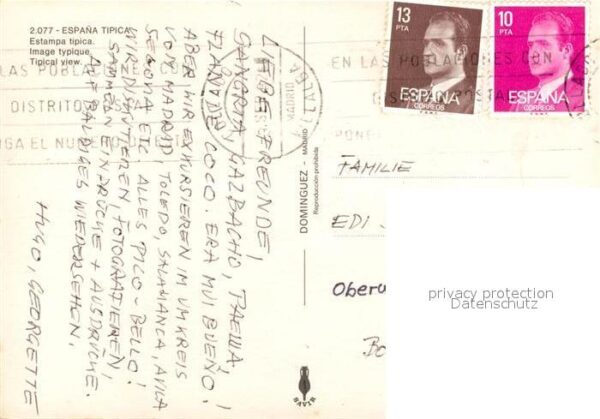 2.077 - ESPAÑA TIPICA
Estampa tipica.
Image typique.
Tipical view.
LIEBE FREUNDE,
SANGRIA, GAZBACHO, PAELLA,
FLAN DEN COCO. ERA MUI BUEÑO!
ABER WIR EXKURSIEREN IM UMKREIS
VON MADRID, TOLEDO, SALAMANCA, AVILA
SEGOVIA ETC ALLES PICO-BELLO!
WIR DISKUTIEREN, FOTOGRAFIEREN,
SAMMELN EINDRÜCKE + AUSDRÜCKE.
AUF BALDIGES WIEDERSEHEN.
HUGO, GEORGETTE
DOMINGUEZ - MADRID
Reproducción prohibida
SAVIR
13
PTA
ESPAÑA
CORREOS
10
PTA
ESPAÑA
CORREOS
EN LAS POBLACIONES CON
DISTRITOS POSTALES
PONGA EL NUMERO
MADRID
EN LAS POBLACIONES CON
DISTRITOS POSTALES
PONGA
FAMILIE
EDI
Oberu
Bo
privacy protection
Datenschutz